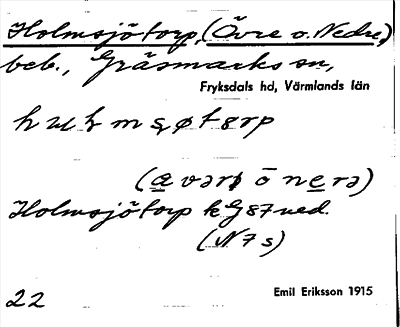 Holmsjötorp, (Övre o. Nedre)
beb., Gräsmarks sn,
Fryksdals hd, Värmlands län
Holmsjötorp kg 87 ned.
(N 7 s)
22
Emil Eriksson 1915